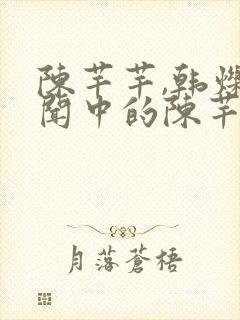 陳芊芊,韓爍
聞中的陳芊
月落蒼梧